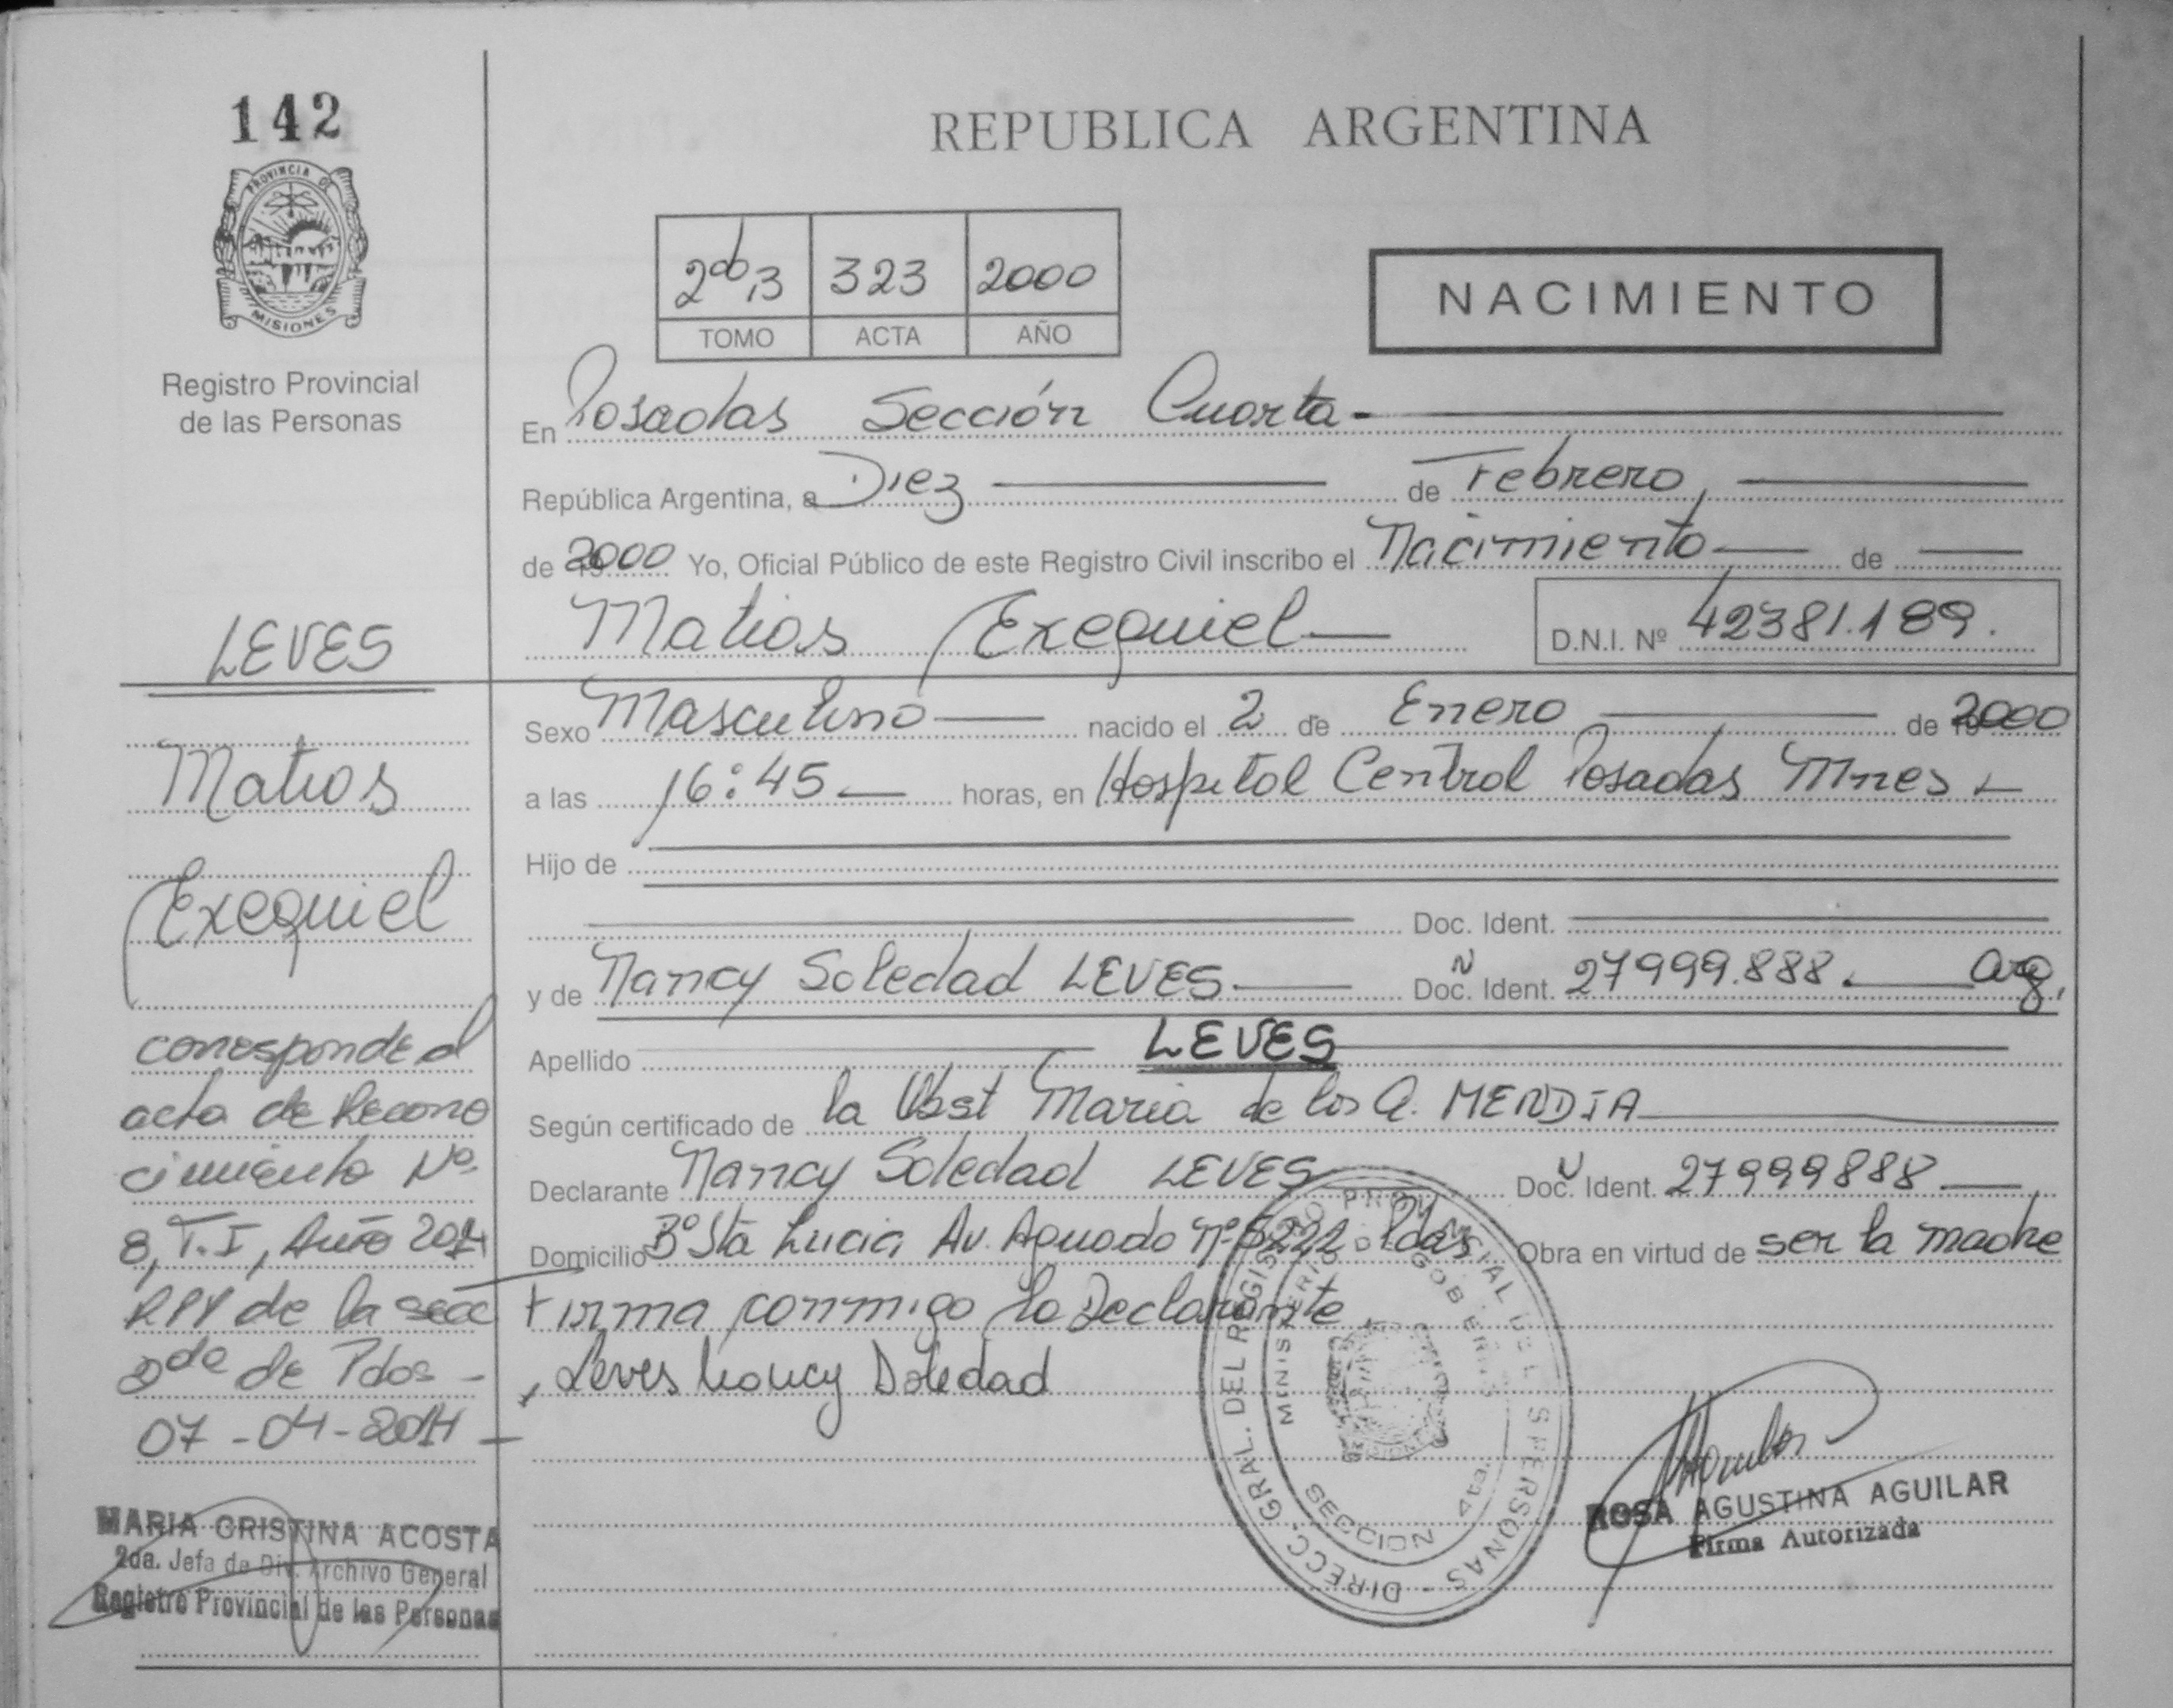 142
PROVINCIA DE
MISIONES
Registro Provincial
de las Personas
LEVES
Matias
Exequiel
corresponde al
acta de Recono
cimiento Nº
8, T. I, Año 2014
RPP de la secc
2da de Pdas -
07-04-2014
MARIA CRISTINA ACOSTA
2da. Jefa de Div. Archivo General
Registro Provincial de las Personas
REPUBLICA ARGENTINA
323 2000
TOMO ACTA AÑO
NACIMIENTO
En Posadas Sección Cuarta
República Argentina, a Diez de Febrero,
de 2000 Yo, Oficial Público de este Registro Civil inscribo el Nacimiento de
Matias Exequiel D.N.I. Nº 42381.189.
Sexo Masculino nacido el 2 de Enero de 2000
a las 16:45 horas, en Hospital Central Posadas Mnes
Hijo de
Doc. Ident.
y de Nancy Soledad LEVES Doc. Ident. 27999.888. Arg.
Apellido LEVES
Según certificado de la Obst Maria de los A. MENDIA
Declarante Nancy Soledad LEVES Doc. Ident. 27999888
Domicilio Bº Sta Lucia Av. Aguado Nº Pdas Obra en virtud de ser la madre
Firma conmigo la Declarante
Leves Nancy Soledad
DIRECC. GRAL. DEL REGISTRO PROVINCIAL DE L S PERSONAS
MINISTERIO DE GOBIERNO
SECCION 4ta.
ROSA AGUSTINA AGUILAR
Firma Autorizada